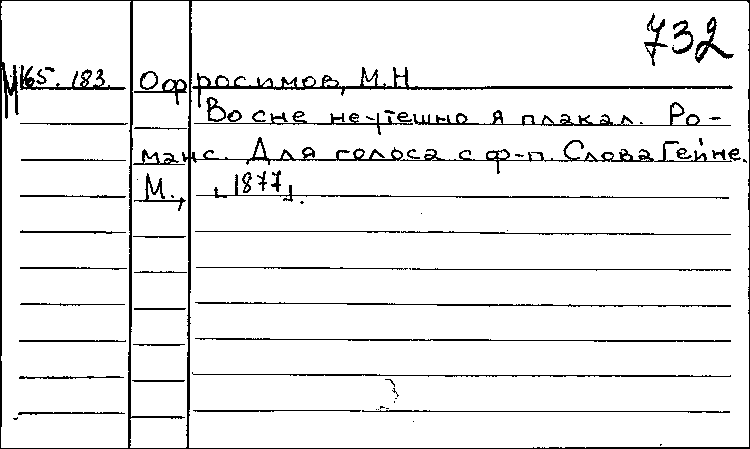 732
М 165.183. Офросимов, М.Н.
Во сне неутешно я плакал. Ро-
манс. Для голоса с ф-п. Слова Гейне.
М., [1877].